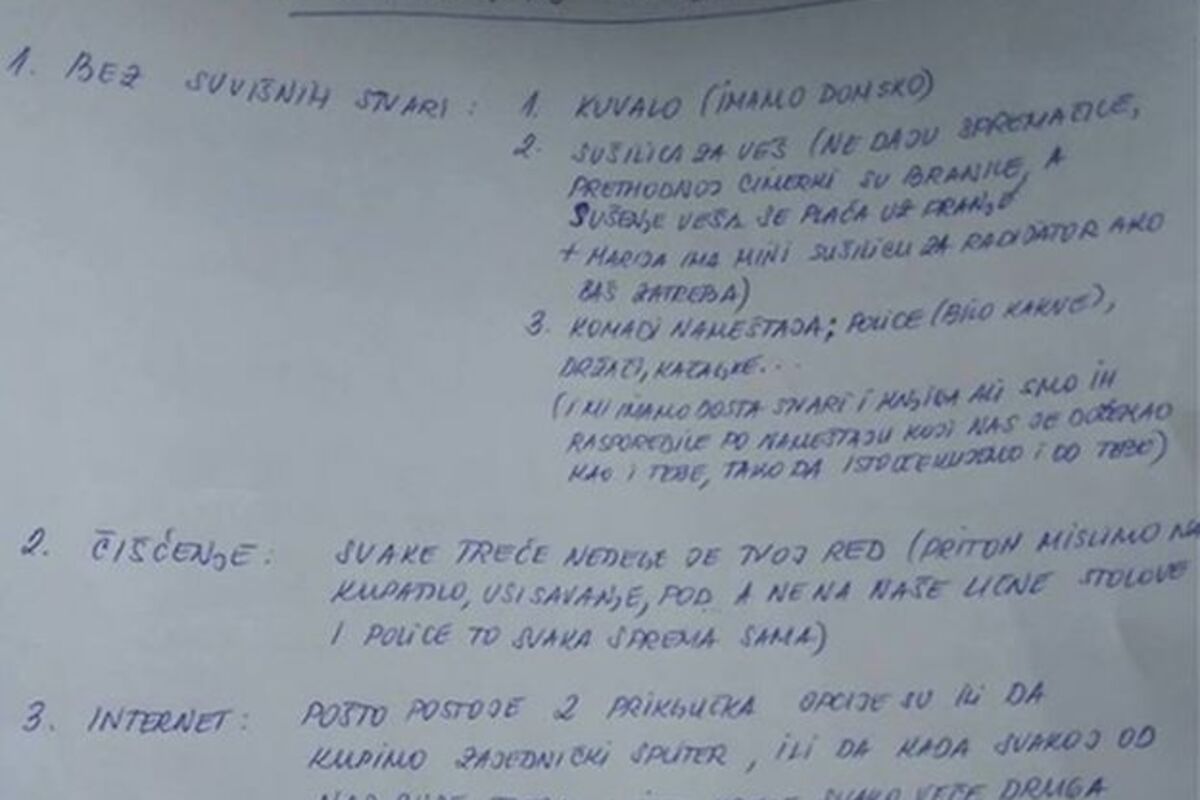 1. BEZ SUVIŠNIH STVARI: 1. KUVALO (IMAMO DOMSKO)
2. SUŠILICA ZA VEŠ (NE DAJU SPREMAČICE,
PRETHODNOJ CIMERKI SU BRANILE, A
SUŠENJE VEŠA SE PLAĆA UZ PRANJE
+ MARIJA IMA MINI SUŠILICU ZA RADIJATOR AKO
BAŠ ZATREBA)
3. KOMADI NAMEŠTAJA; POLICE (BILO KAKVE),
DRŽAČI, KAČALJKE...
(I MI IMAMO DOSTA STVARI I KNJIGA ALI SMO IH
RASPOREDILE PO NAMEŠTAJU KOJI NAS JE DOČEKAO
KAO I TEBE, TAKO DA ISTO OČEKUJEMO I OD TEBE)
2. ČIŠĆENJE: SVAKE TREĆE NEDELJE JE TVOJ RED (PRITOM MISLIMO NA
KUPATILO, USISAVANJE, POD A NE NA NAŠE LIČNE STOLOVE
I POLICE TO SVAKA SPREMA SAMA)
3. INTERNET: POŠTO POSTOJE 2 PRIKLJUČKA OPCIJE SU ILI DA
KUPIMO ZAJEDNIČKI SPLITER, ILI DA KADA SVAKOJ OD
SVAKO VEČE DRUGA